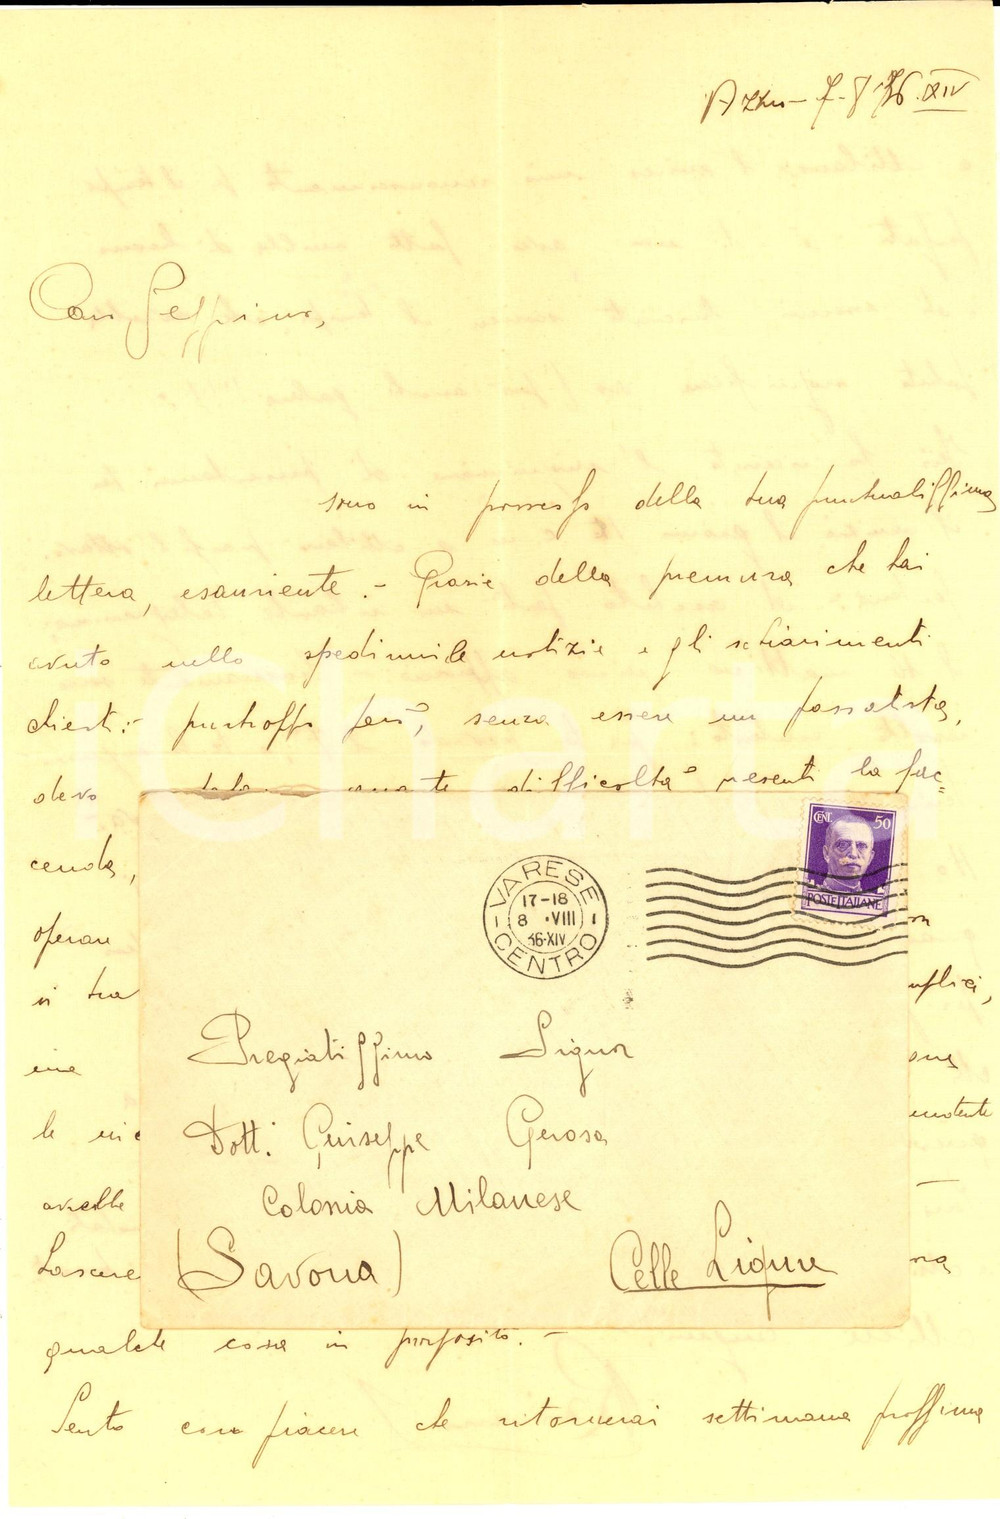 Azzio - 7-8-36.XIV
Caro Geppino,
sono in possesso della tua puntualissima
lettera, esauriente. - Grazie della premura che hai
avuto nello spedirmi le notizie e gli schiarimenti
chiesti: - purtroppo però, senza essere un passatista,
devo difficoltà presenti la fac=
cenda,
operare
si tra uplici,
una
le mie
ascelle
Lascere
qualche cosa in proposito. -
Sento con piacere che ritornerai settimana prossima
CENT. 50
POSTE ITALIANE
VARESE
17-18
8 ·VIII
36·XIV
CENTRO
Pregiatissimo Signor
Dott. Giuseppe Gerosa
Colonia Milanese
(Savona) Celle Ligure
iCharta